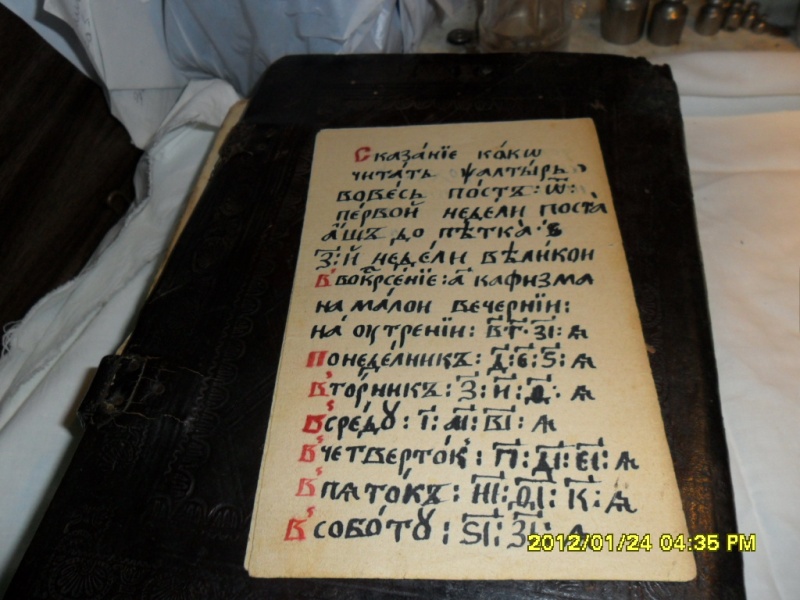 Сказа́нїе ко́кѡ
чита́ть ѱалты́рь
вовесь по́стъ: ѿ:
пе́рвой недели поста
а҃щъ до пѣтка ѕ
з҃:й неде́ли вѣликои
В' вокр҃се́нїе: а҃ кафизма
на ма́лои вечернїи:
на оутренїи: в҃т: з҃і: ѧ
Понеде́лникъ: д҃: є҃: ѕ҃: ѧ
В' то́рникъ: з҃: и҃: д҃: ѧ
В' сре́дꙋ: і҃: а҃і: в҃і: ѧ
В' четверто́к: г҃і: д҃і: є҃і: ѧ
В' пѧто́къ: и҃і: д҃і: к҃: ѧ
В' собо́тꙋ: ѕ҃і: з҃і: ѧ
2012/01/24 04:35 PM